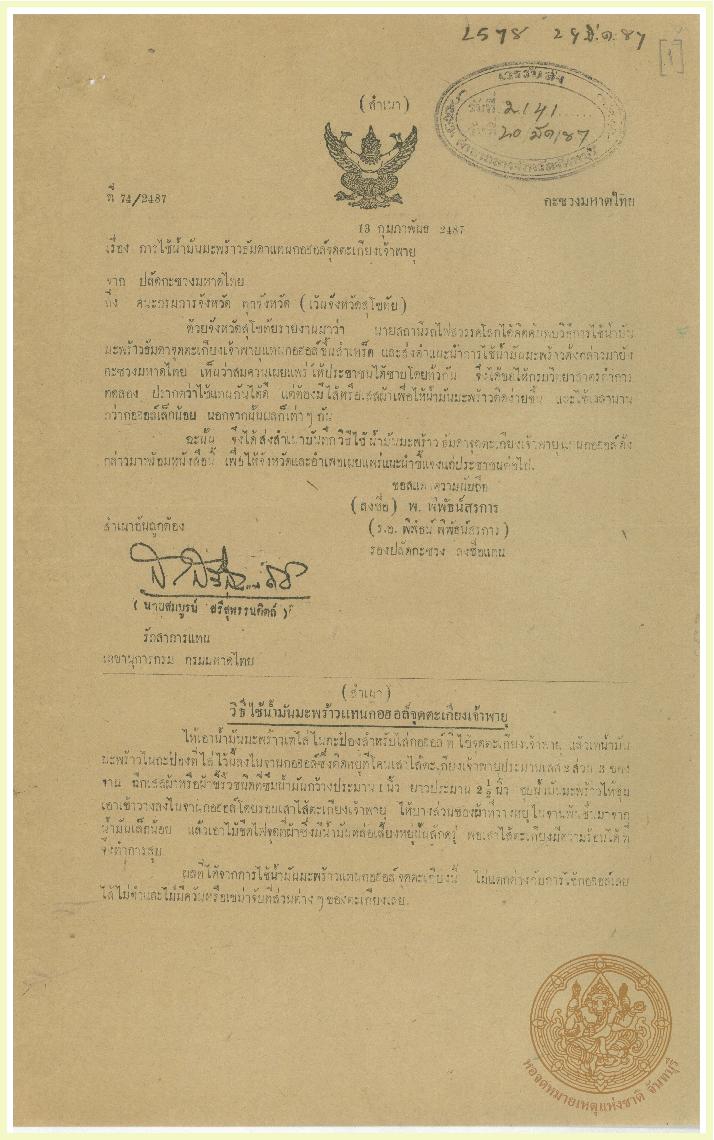 2578 29 มี.ค. 87
[1]
(สำเนา)
รับที่ 2141
วันที่ 20 มีค 87
ที่ 74/2487
กะซวงมหาดไทย
13 กุมภาพันธ 2487
เรื่อง การใช้น้ำมันมะพร้าวธัมดาแทนกอฮอล์จุดตะเกียงเจ้าพายุ
จาก ปลัดกะซวงมหาดไทย
ถึง คนะกรมการจังหวัด ทุกจังหวัด (เว้นจังหวัดสุโขทัย)
ด้วยจังหวัดสุโขทัยรายงานมาว่า นายสถานีรถไฟสวรรคโลกได้คิดค้นพบวิธีการใช้น้ำมัน
มะพร้าวธัมดาจุดตะเกียงเจ้าพายุแทนกอฮอล์ขึ้นสำเหร็ด และส่งคำแนะนำการใช้น้ำมันมะพร้าวดังกล่าวมายัง
กะซวงมหาดไทย เห็นว่าสมควนเผยแพร่ให้ประชาชนได้ซาบโดยทั่วกัน จึงได้ขอให้กรมวิทยาสาตรทำการ
ทดลอง ปรากตว่าใช้แทนกันได้ดี แต่ต้องมีไส้หรือเสสผ้าเพื่อให้น้ำมันมะพร้าวติดง่ายขึ้น และใช้เวลานาน
กว่ากอฮอล์เล็กน้อย นอกจากนั้นผลก็เท่า ๆ กัน
ฉะนั้น จึงได้ส่งสำเนาบันทึกวิธีใช้น้ำมันมะพร้าวธัมดาจุดตะเกียงเจ้าพายุแทนกอฮอล์ดัง
กล่าวมาพร้อมหนังสือนี้ เพื่อให้จังหวัดและอำเพอเผยแพร่แนะนำชี้แจงแก่ประชาชนต่อไป.
ขอสแดงความนับถือ
(ลงชื่อ) พ. พิพัธน์สรการ
สำเนาอันถูกต้อง
(ร.อ. พิพัธน์ พิพัธน์สรการ)
รองปลัดกะซวง ลงชื่อแทน
(นายสมบูรน์ สรีสุพรรนดิตถ์)
รักสาการแทน
เลขานุการกรม กรมมหาดไทย
(สำเนา)
วิธีใช้น้ำมันมะพร้าวแทนกอฮอล์จุดตะเกียงเจ้าพายุ
ให้เอาน้ำมันมะพร้าวเทใส่ในกะป๋องสำหรับใส่กอฮอล์ที่ใช้จุดตะเกียงเจ้าพายุ แล้วเทน้ำมัน
มะพร้าวในกะป๋องที่ใส่ไว้นี้ลงในจานกอฮอล์ซึ่งติดหยู่ที่โคนเสาไส้ตะเกียงเจ้าพายุประมานเสส 2 ส่วน 3 ของ
จาน ฉีกเสสผ้าหรือผ้าขี้ริ้วชนิดที่ซึมน้ำมันกว้างประมาน 1 นิ้ว ยาวประมาน 2 ½ นิ้ว ชุบน้ำมันมะพร้าวให้ชุ่ม
เอาเข้าวางลงในจานกอฮอล์โดยรอบเสาไส้ตะเกียงเจ้าพายุ ให้บางส่วนของผ้าที่วางหยู่ในจานพ้นขึ้นมาจาก
น้ำมันเล็กน้อย แล้วเอาไม้ขีดไฟจุดที่ผ้าซึ่งมีน้ำมันหล่อเลี้ยงหยู่นั้นสักครู่ พอเสาไส้ตะเกียงมีความร้อนได้ที่
จึงทำการสูบ
ผลที่ได้จากการใช้น้ำมันมะพร้าวแทนกอฮอล์จุดตะเกียงนี้ ไม่แตกต่างกับการใช้กอฮอล์เลย
ไส้ไม่ดำและไม่มีควันหรือเขม่าจับที่ส่วนต่าง ๆ ของตะเกียงเลย.
หอจดหมายเหตุแห่งชาติ จันทบุรี